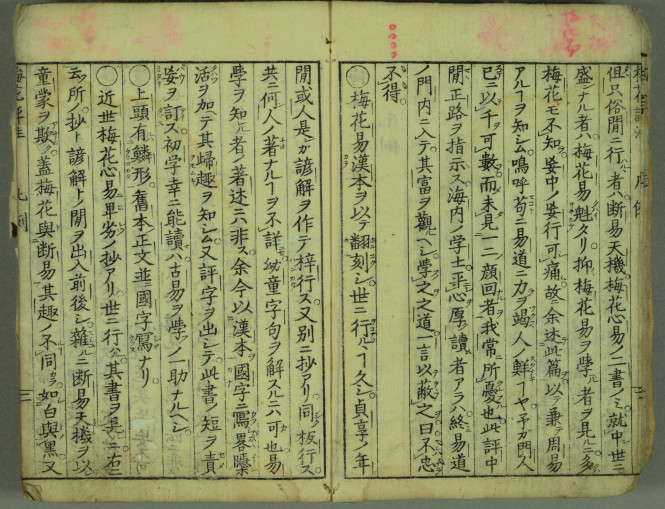 但只俗間ニ行ハル者ハ断易天機梅花心易ノ二書ノミ就中世ニ
盛ナル者ハ梅花易魁タリ抑梅花易ヲ學ル者ヲ見ニ多ハ
梅花モ不知ノ妄中ノ妄行可痛故ニ余述此篇以テ乗テ周易
アルヿヲ知シム嗚呼苟ニ易道ニ力ヲ竭ス人ノ鮮ヿヤ予カ門人
已ニ以千ヲ可數而未見一二顔回者我常ニ所憂也此評中
間正路ヲ指示ス海内ノ学士平心厚讀者アラハ終易道
ノ門内ニ入テ其富ヲ觀ヘシ學之之道一言以蔽之曰不忠
不得
梅花易漢本ヲ以テ翻刻シ世ニ行ルヿ久シ貞享ノ年
間或人是カ諺解ヲ作テ梓行ス又別ニ抄アリ同ク板行ス
共ニ何人ノ著ナルヿヲ不詳幼童字句ヲ解スルニ六可也易
學ヲ知ル者ノ著述ニ六非ス余今以漢本ヲ國字ニ寫畧檃
活ヲ加ヘテ其歸趣ヲ知シム又評字ヲ出シテ此書ノ短ヲ責
妄ヲ訂ス初学幸ニ能讀ハ古易ヲ學ノ一助ナルヘシ
上頭有鱗形舊本正文並ニ國字寫ナリ
近世梅花心易卑劣抄アリ世ニ行ハル其書ヲ見ニ右ニ
云フ所ノ抄ト諺解トノ間ヲ出入前後シ雜ニ断易天機ヲ以
童蒙ヲ欺ク蓋梅花與断易其趣ノ不同ヿ如白與黒又